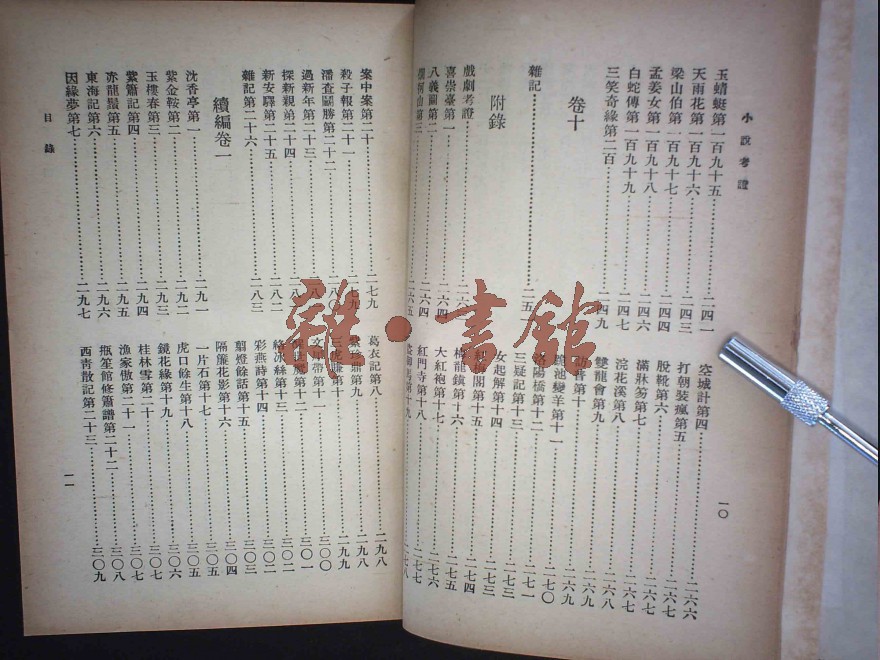 小說考證
玉蜻蜓第一百九十五……二四一
天雨花第一百九十六……二四三
梁山伯第一百九十七……二四六
孟姜女第一百九十八……二四六
白蛇傳第一百九十九……二四七
三笑奇緣第二百……二四九
卷十
雜記……二五
附錄
戲劇考證
喜崇臺第一……二六
八義圖第二……二六四
第三……二六五
空城計第四……二六六
打朝裝瘋第五……二六六
脫靴第六……二六七
滿牀笏第七……二六七
浣花溪第八……二六八
雙龍會第九……二六九
第十……二六九
變羊第十一……二七〇
洛陽橋第十二……二七一
三疑記第十三……二七二
女起解第十四……二七三
閣第十五……二七四
梅龍鎮第十六……二七五
大紅袍第十七……二七六
紅門寺第十八……二七七
第十九……二七八
一〇
案中案第二十……二七九
殺子報第二十一……二七九
潘查鬬勝第二十二……二八〇
過新年第二十三……二八
探新親第二十四……二八
新安驛第二十五……二八二
雜記第二十六……二八三
續編卷一
沈香亭第一……二九一
紫金鞍第二……二九二
玉樓春第三……二九三
紫簫記第四……二九四
赤龍鬚第五……二九五
東海記第六……二九六
因緣夢第七……二九七
葛衣記第八……二九八
紫珍鼎第九……二九八
三虎賺第十……二九九
帶第十一……三〇〇
第十二……三〇一
絡冰絲第十三……三〇二
彩燕詩第十四……三〇二
翦燈餘話第十五……三〇三
隔簾花影第十六……三〇四
一片石第十七……三〇五
虎口餘生第十八……三〇六
鏡花緣第十九……三〇六
桂林雪第二十……三〇七
漁家傲第二十一……三〇七
瓶笙館修簫譜第二十二……三〇八
西青散記第二十三……三〇九
目錄
一一
雜·書館